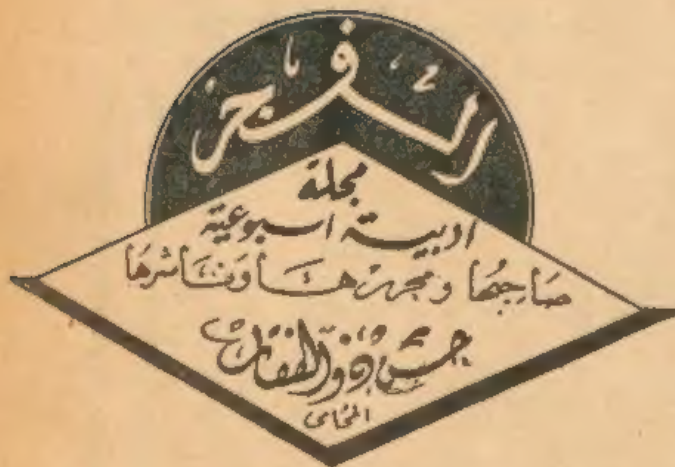 الفجر
مجلة
ادبية اسبوعية
صاحبها ومحررها وناشرها
حسن ذو الفقار
المحامي